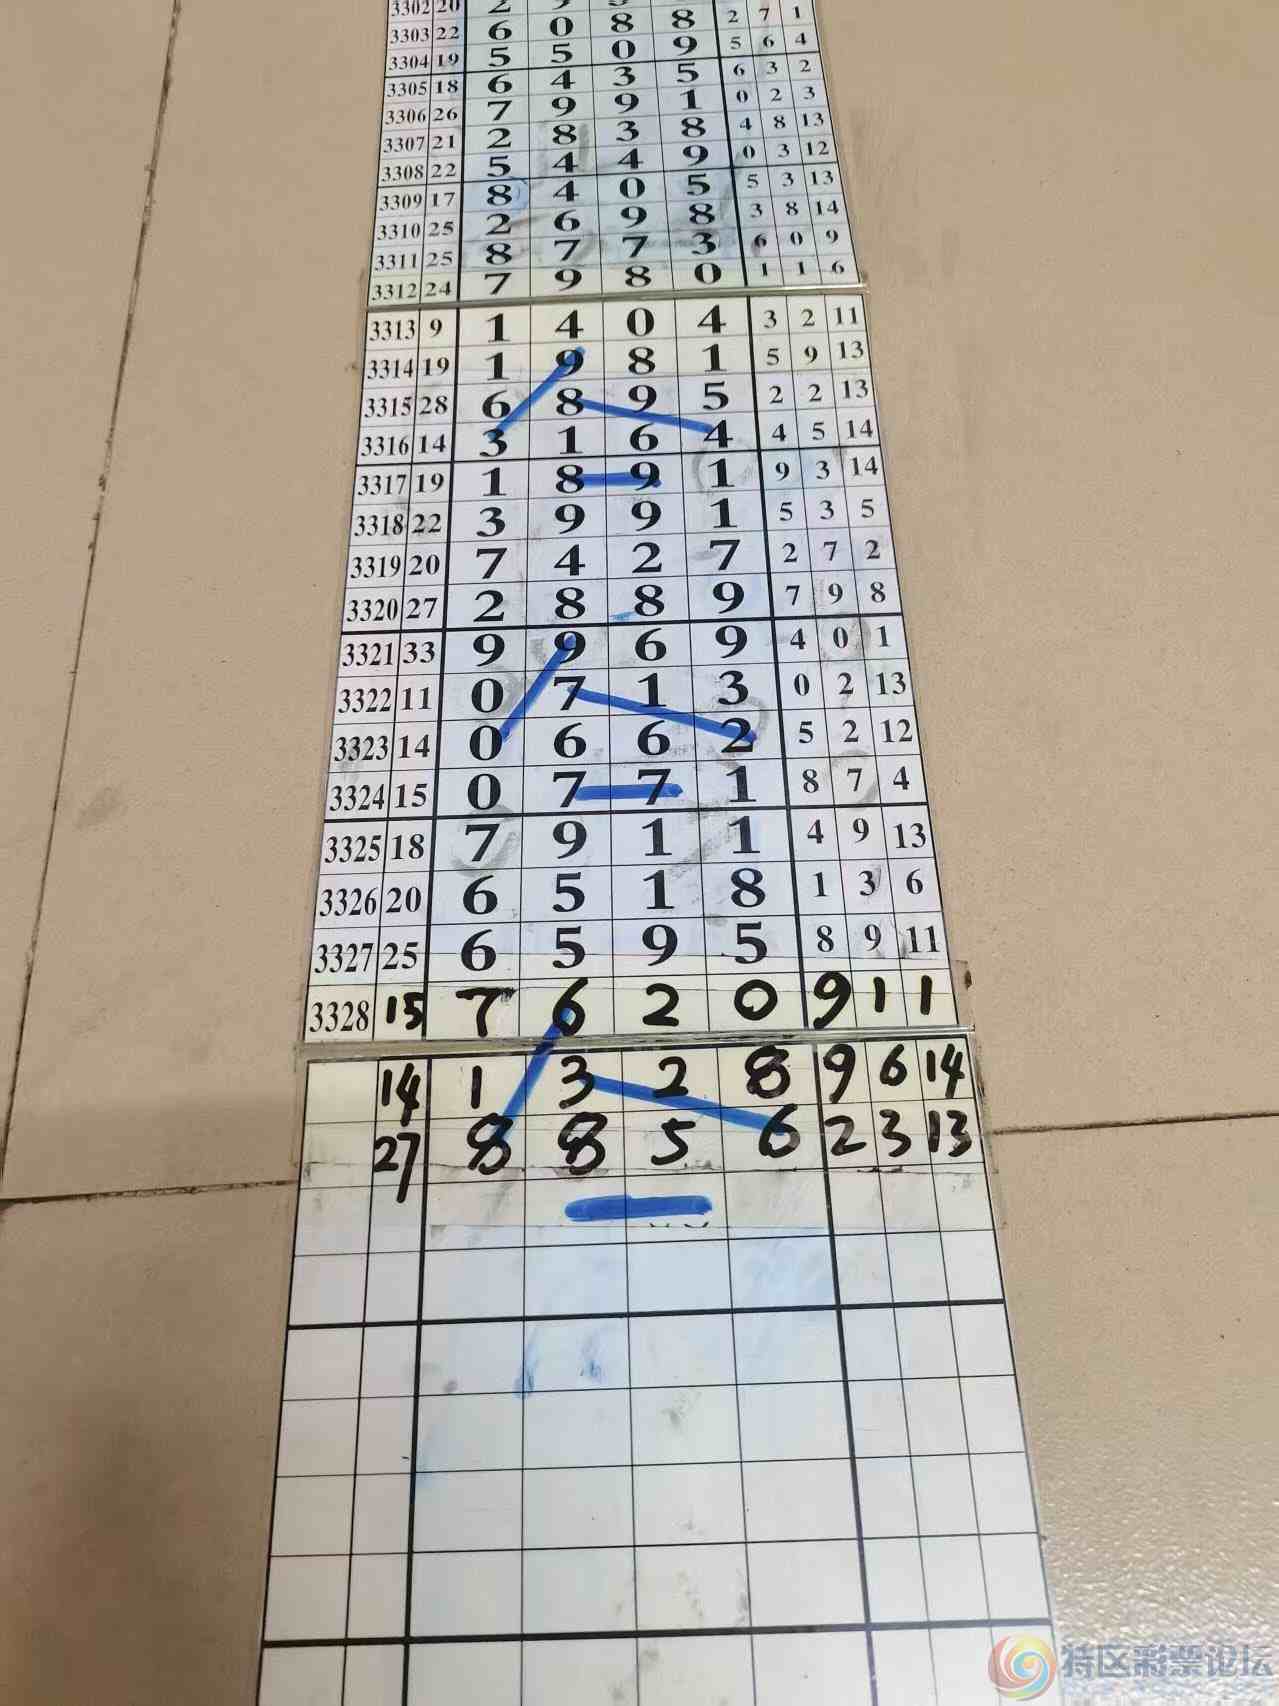 3302 20 2 9
3303 22 6 0 8 8 2 7 1
3304 19 5 5 0 9 5 6 4
3305 18 6 4 3 5 6 3 2
3306 26 7 9 9 1 0 2 3
3307 21 2 8 3 8 4 8 13
3308 22 5 4 4 9 0 3 12
3309 17 8 4 0 5 5 3 13
3310 25 2 6 9 8 3 8 14
3311 25 8 7 7 3 6 0 9
3312 24 7 9 8 0 1 1 6
3313 9 1 4 0 4 3 2 11
3314 19 1 9 8 1 5 9 13
3315 28 6 8 9 5 2 2 13
3316 14 3 1 6 4 4 5 14
3317 19 1 8 9 1 9 3 14
3318 22 3 9 9 1 5 3 5
3319 20 7 4 2 7 2 7 2
3320 27 2 8 8 9 7 9 8
3321 33 9 9 6 9 4 0 1
3322 11 0 7 1 3 0 2 13
3323 14 0 6 6 2 5 2 12
3324 15 0 7 7 1 8 7 4
3325 18 7 9 1 1 4 9 13
3326 20 6 5 1 8 1 3 6
3327 25 6 5 9 5 8 9 11
3328 15 7 6 2 0 9 1 1
14 1 3 2 8 9 6 14
27 8 8 5 6 2 3 13
特区彩票论坛